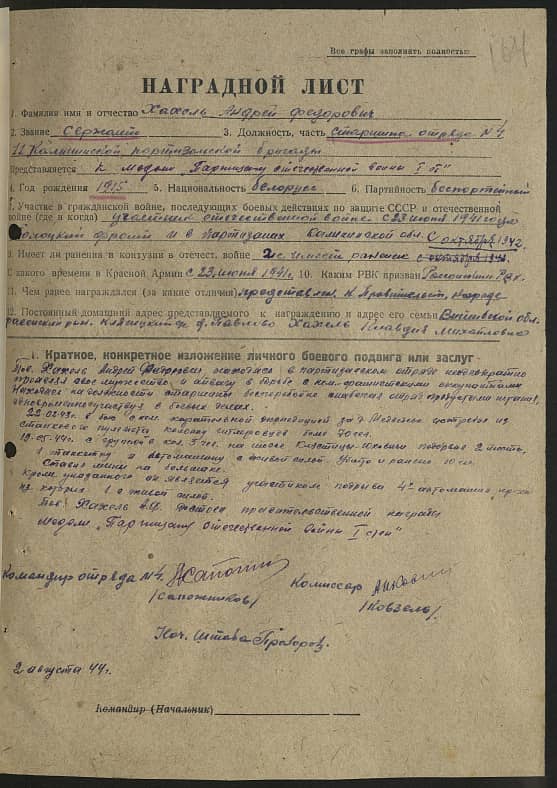 Все графы заполнять полностью
164
НАГРАДНОЙ ЛИСТ
1. Фамилия имя и отчество Хахель Андрей Федорович
2. Звание Сержант 3. Должность, часть старшина отряда №4
12 Калининской партизанской бригады
Представляется к Медали "Партизану отечественной войны I ст"
4. Год рождения 1915 5. Национальность белорус 6. Партийность беспартейный
7. Участие в гражданской войне, последующих боевых действиях по защите СССР и отечественной
войне (где и когда) участник отечественной войне с 23 июня 1941 года
фронт и в партизанах Калининской обл. с октября 1942
8. Имел ли ранения и контузии в отечест. войне
С какого времени в Красной Армии с 23 июня 1941 г. 10. Каким РВК призван
11. Чем ранее награждался (за какие отличия) представлен к правительст. награде
12. Постоянный домашний адрес представляемого к награждению и адрес его семьи
д. Павлово Хахель Клавдия Михайловна
I. Краткое, конкретное изложение личного боевого подвига или заслуг
Тов. Хахель Андрей Федорович находясь в партизанском отряде неоднократно
проявлял свое мужество и отвагу в борьбе с нем. фашистскими оккупантами
Находясь на должности старшины бесперебойно снабжал отряд продуктами питания,
одновременно участвуя в боевых делах.
22.02.43г. в бою с нем. карательной экспедицией
станкового пулемета
с группой кол. 5 чел. на шоссе подорвал 2 моста,
1 танкетку и автомашину с живой силой. Убито и ранено 10 чел.
Ставил мины на большаке.
Кроме указанного он является участником подрыва 4х автомашин
из которых 1 с живой силой.
Тов. Хахель А.Ф. достоин правительственной награды
медали "Партизану Отечественной Войны I степ"
Командир отряда №4
/Сапожников/
Комиссар
/Ковзель/
Нач. Штаба Прохоров
2 августа 44 г.
Командир (Начальник)